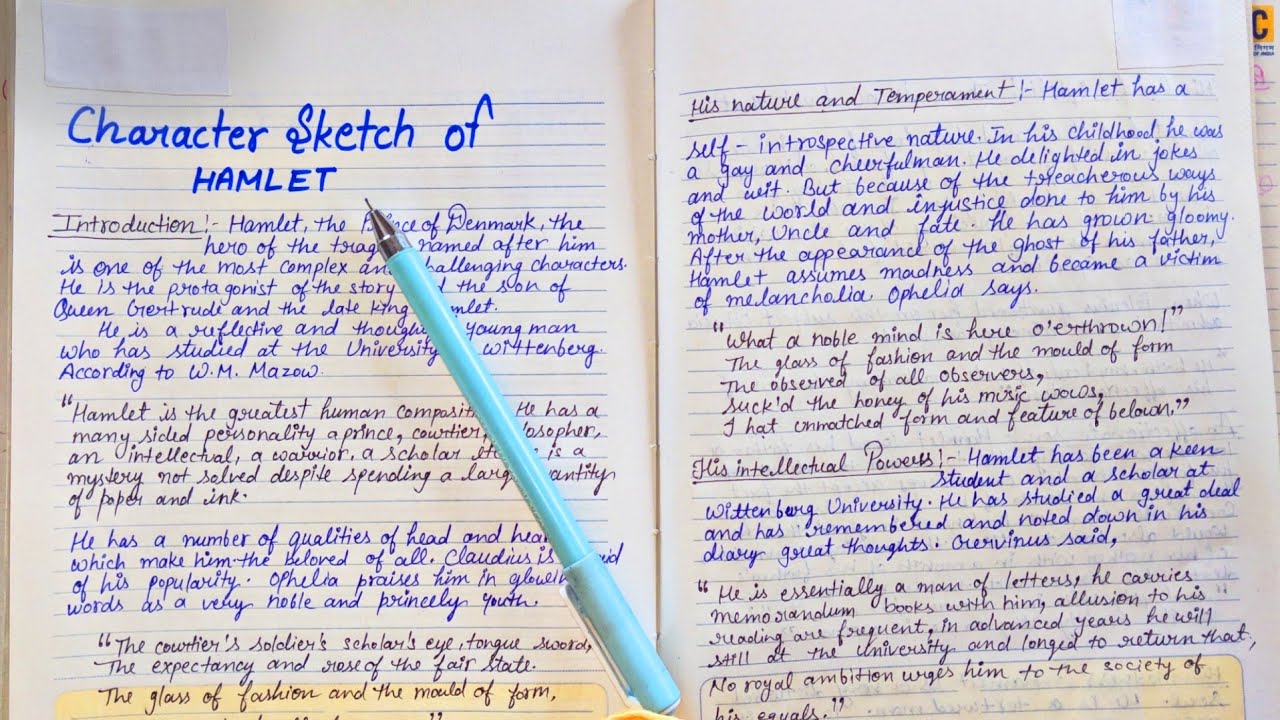 Character Sketch of
HAMLET
Introduction:- Hamlet, the of Denmark, the
hero of the named after him
is one of the most complex challenging characters.
He is the protagonist of the story the son of
Queen Gertrude and the late King
He is a reflective and young man
who has studied at the University Wittenberg.
According to W.M. Mazow.
"Hamlet is the greatest human He has a
many sided personality a prince, courtier,
an intellectual, a warrior, a scholar is a
mystery not solved despite spending a
of paper and ink.
He has a number of qualities of head and
which make him the beloved of all. Claudius is
of his popularity. Ophelia praises him in
words as a very noble and princely youth.
"The courtier's soldier's scholar's eye, tongue sword,
The expectancy and rose of the fair state.
The glass of fashion and the mould of form,
His nature and Temperament:- Hamlet has a
self-introspective nature. In his childhood he was
a gay and cheerfulman. He delighted in jokes
and wit. But because of the treacherous ways
of the world and injustice done to him by his
mother, Uncle and fate. He has grown gloomy.
After the appearance of the ghost of his father,
Hamlet assumes madness and became a victim
of melancholia. Ophelia says.
"What a noble mind is here o'erthrown!"
The glass of fashion and the mould of form
The observed of all observers,
Suck'd the honey of his music wows,
I hat unmatched form and feature of belown."
His intellectual Powers:- Hamlet has been a keen
student and a scholar at
Wittenberg University. He has studied a great deal
and has remembered and noted down in his
diary great thoughts. Gervinus said,
"He is essentially a man of letters, he carries
memorandum books with him, allusion to his
reading are frequent, in advanced years he will
still at the university and longed to return that,
No royal ambition urges him to the society of
his equals."